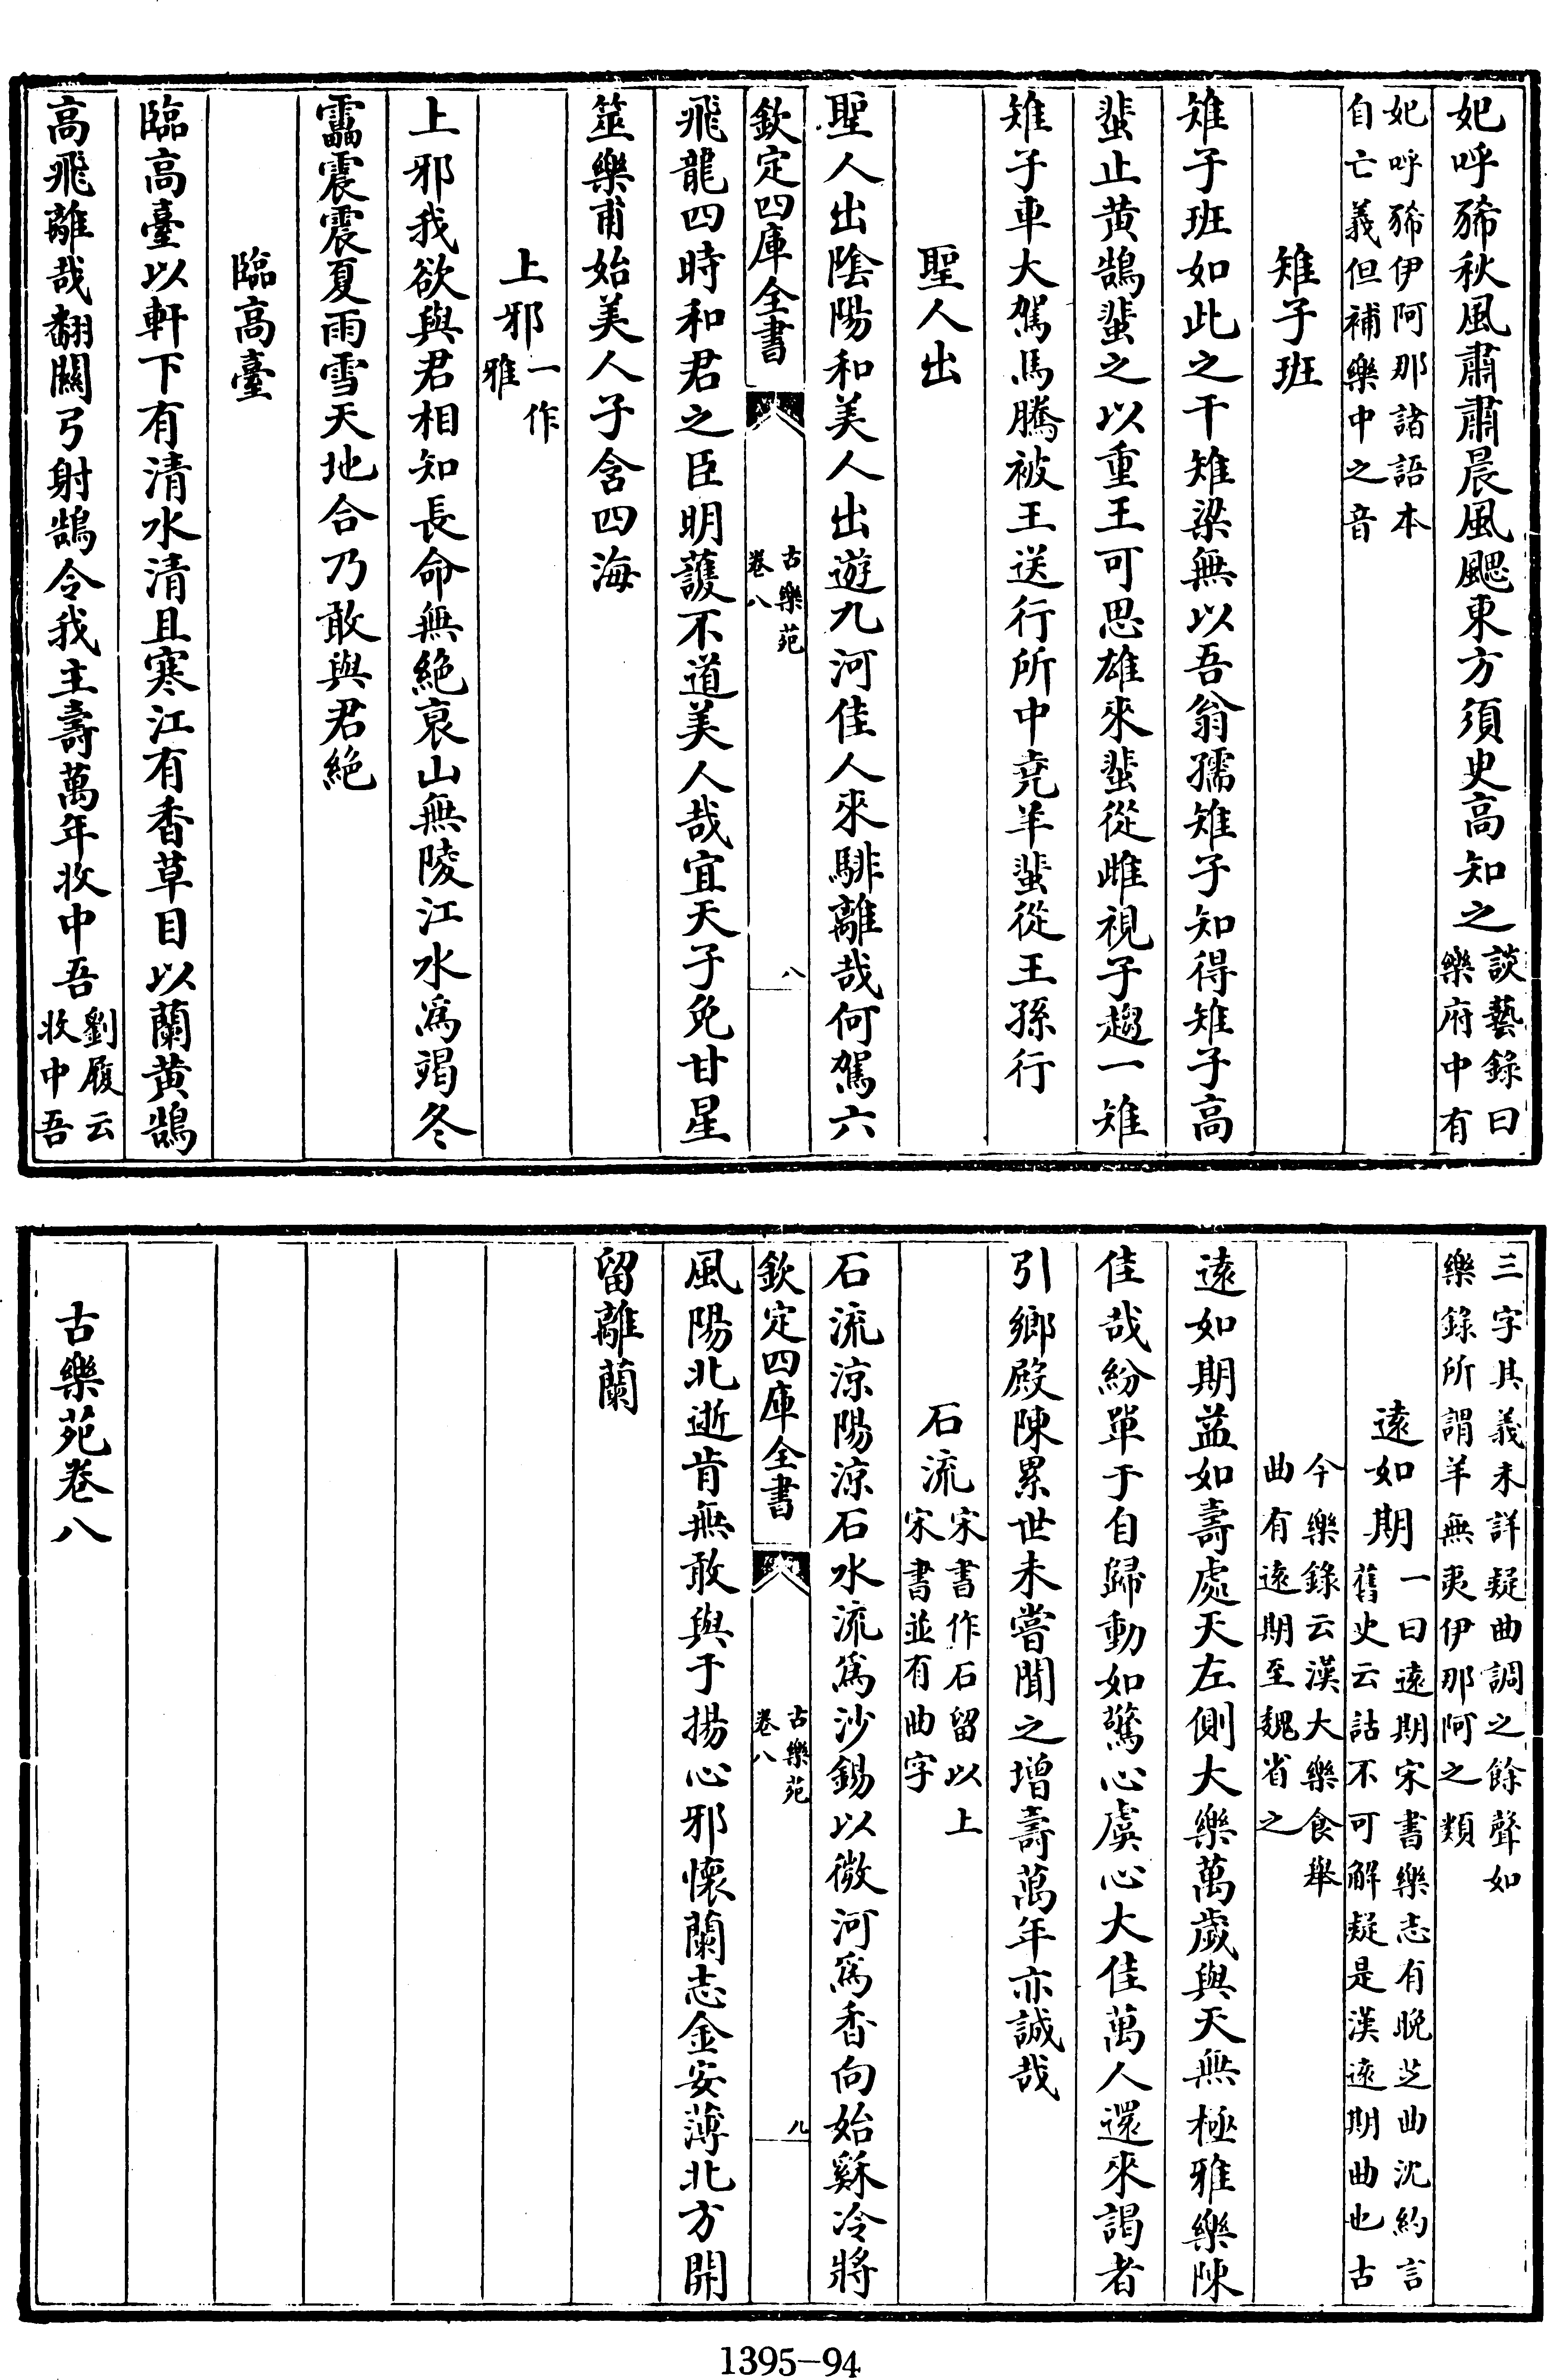 妃呼豨秋風肅肅晨風颸東方須史高知之談藝錄曰
樂府中有
妃呼豨伊阿那諸語本
自亡義但補樂中之音
雉子班
雉子班如此之干雉梁無以吾翁孺雉子知得雉子高
蜚止黄鵠蜚之以重王可思雄來蜚從雌視子趨一雉
雉子車大駕馬騰被王送行所中堯羊蜚從王孫行
聖人出
聖人出隂陽和美人出遊九河佳人來騑離哉何駕六
欽定四庫全書
古樂苑
卷八
八
飛龍四時和君之臣明護不道美人哉宜天子免甘星
筮樂甫始美人子含四海
上邪一作
雅
上邪我欲與君相知長命無絶衰山無陵江水為竭冬
靁震震夏雨雪天地合乃敢與君絶
臨高臺
臨高臺以軒下有清水清且寒江有香草目以蘭黄鵠
高飛離哉翻關弓射鵠令我主壽萬年收中吾劉履云
收中吾
三字其義未詳疑曲調之餘聲如
樂錄所謂羊無夷伊那阿之類
遠如期一曰遠期宋書樂志有晚芝曲沈約言
舊史云詁不可解疑是漢遠期曲也古
今樂錄云漢大樂食舉
曲有遠期至魏省之
遠如期益如壽處天左側大樂萬歲與天無極雅樂陳
佳哉紛單于自歸動如驚心虞心大佳萬人還來謁者
引鄉殿陳累世未嘗聞之增壽萬年亦誠哉
石流宋書作石留以上
宋書並有曲字
石流涼陽涼石水流為沙錫以微河為香向始谿冷將
欽定四庫全書
古樂苑
卷八
九
風陽北逝肯無敢與于揚心邪懷蘭志金安薄北方開
留離蘭
古樂苑卷八
1395-94